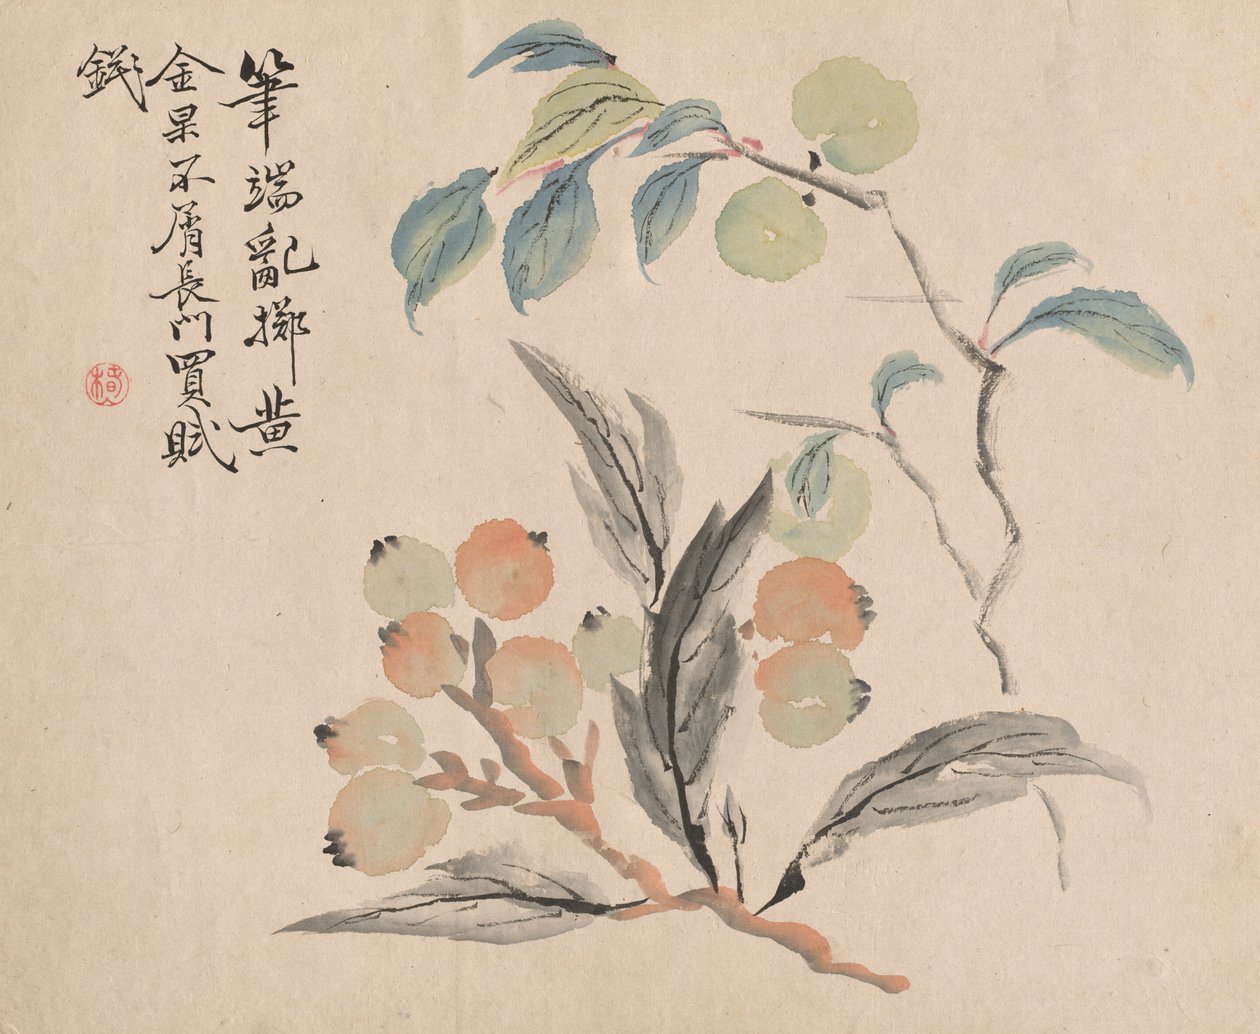 筆端亂擲黃
金果不屑長門買賦
錢